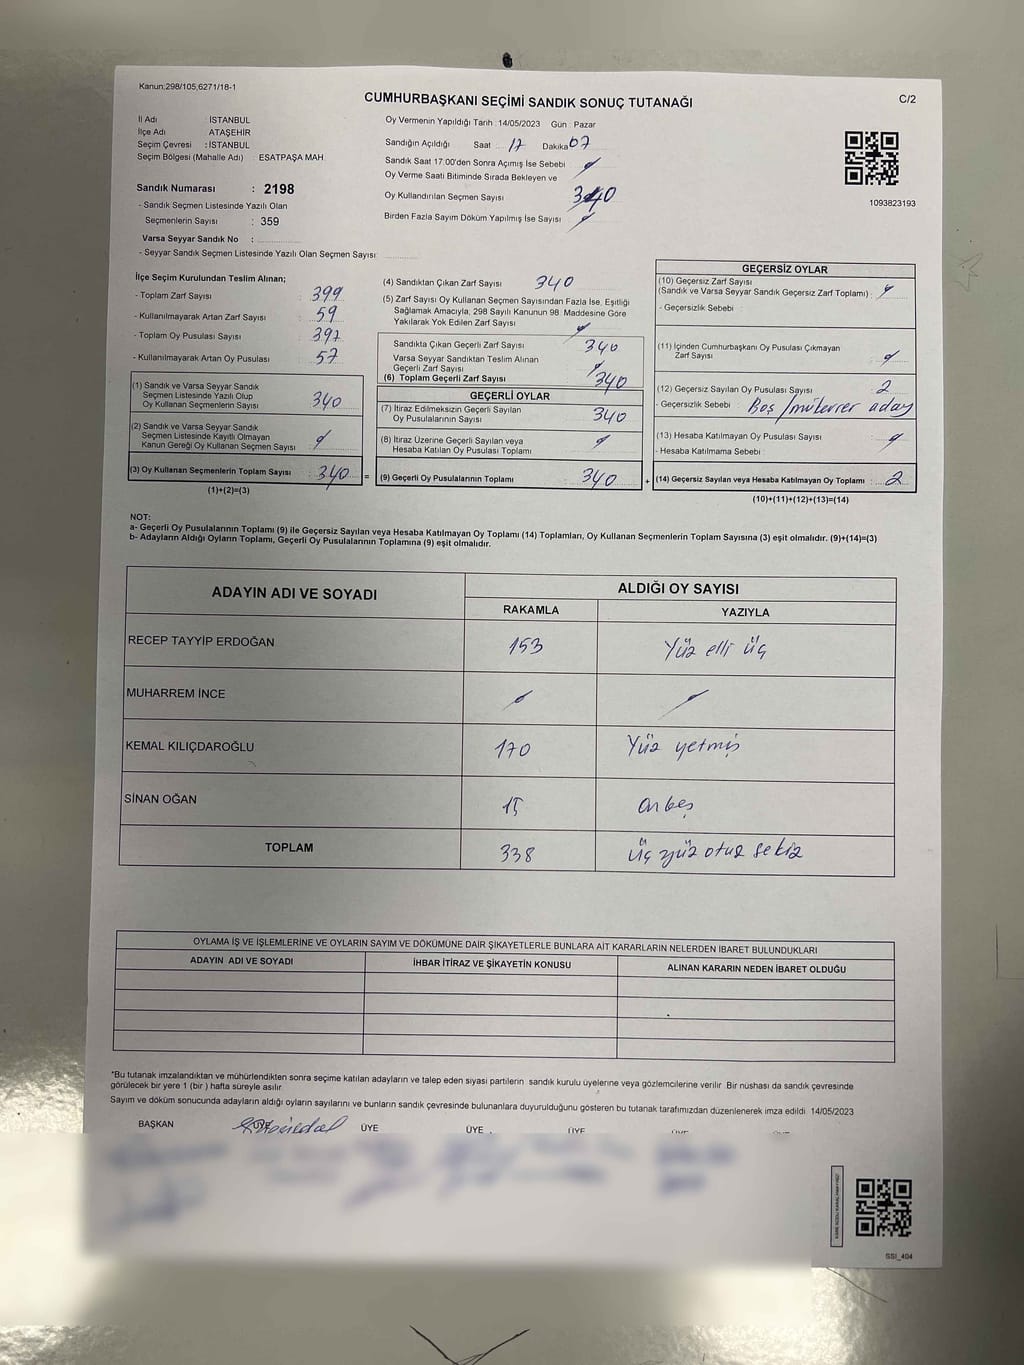 Kanun:298/105,6271/18-1
CUMHURBAŞKANI SEÇİMİ SANDIK SONUÇ TUTANAĞI
C/2
İl Adı : İSTANBUL
İlçe Adı : ATAŞEHİR
Seçim Çevresi : İSTANBUL
Seçim Bölgesi (Mahalle Adı) : ESATPAŞA MAH.
Sandık Numarası : 2198
- Sandık Seçmen Listesinde Yazılı Olan
Seçmenlerin Sayısı : 359
Varsa Seyyar Sandık No :
- Seyyar Sandık Seçmen Listesinde Yazılı Olan Seçmen Sayısı
Oy Vermenin Yapıldığı Tarih :14/05/2023 Gün : Pazar
Sandığın Açıldığı Saat 17 Dakika 07
Sandık Saat 17:00'den Sonra Açımış İse Sebebi
Oy Verme Saati Bitiminde Sırada Bekleyen ve
Oy Kullandırılan Seçmen Sayısı 340
Birden Fazla Sayım Döküm Yapılmış İse Sayısı
1093823193
İlçe Seçim Kurulundan Teslim Alınan;
- Toplam Zarf Sayısı : 399
- Kullanılmayarak Artan Zarf Sayısı : 59
- Toplam Oy Pusulası Sayısı : 397
- Kullanılmayarak Artan Oy Pusulası : 57
(1) Sandık ve Varsa Seyyar Sandık
Seçmen Listesinde Yazılı Olup
Oy Kullanan Seçmenlerin Sayısı : 340
(2) Sandık ve Varsa Seyyar Sandık
Seçmen Listesinde Kayıtlı Olmayan
Kanun Gereği Oy Kullanan Seçmen Sayısı :
(3) Oy Kullanan Seçmenlerin Toplam Sayısı : 340 =
(1)+(2)=(3)
(4) Sandıktan Çıkan Zarf Sayısı 340
(5) Zarf Sayısı Oy Kullanan Seçmen Sayısından Fazla İse, Eşitliği
Sağlamak Amacıyla, 298 Sayılı Kanunun 98. Maddesine Göre
Yakılarak Yok Edilen Zarf Sayısı
Sandıkta Çıkan Geçerli Zarf Sayısı 340
Varsa Seyyar Sandıktan Teslim Alınan
Geçerli Zarf Sayısı
(6) Toplam Geçerli Zarf Sayısı 340
GEÇERLİ OYLAR
(7) İtiraz Edilmeksizin Geçerli Sayılan
Oy Pusulalarının Sayısı 340
(8) İtiraz Üzerine Geçerli Sayılan veya
Hesaba Katılan Oy Pusulası Toplamı
(9) Geçerli Oy Pusulalarının Toplamı 340 +
GEÇERSİZ OYLAR
(10) Geçersiz Zarf Sayısı
(Sandık ve Varsa Seyyar Sandık Geçersiz Zarf Toplamı) :
- Geçersizlik Sebebi :
(11) İçinden Cumhurbaşkanı Oy Pusulası Çıkmayan
Zarf Sayısı
(12) Geçersiz Sayılan Oy Pusulası Sayısı : 2
- Geçersizlik Sebebi : Boş / aday
(13) Hesaba Katılmayan Oy Pusulası Sayısı :
- Hesaba Katılmama Sebebi :
(14) Geçersiz Sayılan veya Hesaba Katılmayan Oy Toplamı : 2
(10)+(11)+(12)+(13)=(14)
NOT:
a- Geçerli Oy Pusulalarının Toplamı (9) ile Geçersiz Sayılan veya Hesaba Katılmayan Oy Toplamı (14) Toplamları, Oy Kullanan Seçmenlerin Toplam Sayısına (3) eşit olmalıdır. (9)+(14)=(3)
b- Adayların Aldığı Oyların Toplamı, Geçerli Oy Pusulalarının Toplamına (9) eşit olmalıdır.
ADAYIN ADI VE SOYADI
ALDIĞI OY SAYISI
RAKAMLA YAZIYLA
RECEP TAYYİP ERDOĞAN 153 Yüz elli üç
MUHARREM İNCE
KEMAL KILIÇDAROĞLU 170 Yüz yetmiş
SİNAN OĞAN 15 on beş
TOPLAM 338 üç yüz otuz sekiz
OYLAMA İŞ VE İŞLEMLERİNE VE OYLARIN SAYIM VE DÖKÜMÜNE DAİR ŞİKAYETLERLE BUNLARA AİT KARARLARIN NELERDEN İBARET BULUNDUKLARI
ADAYIN ADI VE SOYADI İHBAR İTİRAZ VE ŞİKAYETİN KONUSU ALINAN KARARIN NEDEN İBARET OLDUĞU
*Bu tutanak imzalandıktan ve mühürlendikten sonra seçime katılan adayların ve talep eden siyasi partilerin sandık kurulu üyelerine veya gözlemcilerine verilir. Bir nüshası da sandık çevresinde
görülecek bir yere 1 (bir) hafta süreyle asılır.
Sayım ve döküm sonucunda adayların aldığı oyların sayılarını ve bunların sandık çevresinde bulunanlara duyurulduğunu gösteren bu tutanak tarafımızdan düzenlenerek imza edildi 14/05/2023
BAŞKAN ÜYE ÜYE ÜYE ÜYE
SSI_404